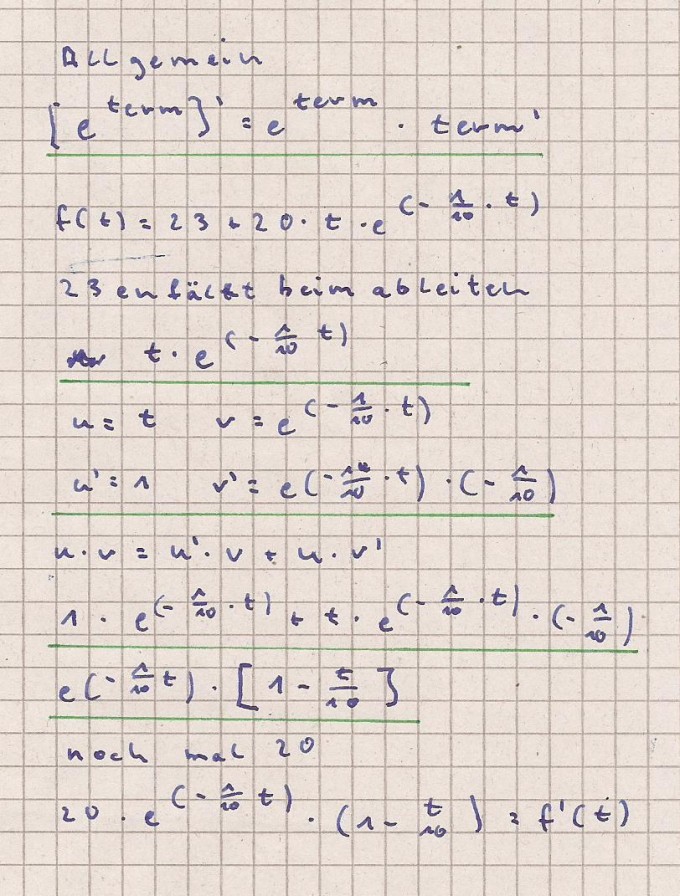 Allgemein
[e^term]' = e^term · term'
f(t) = 23 + 20 · t · e^(- 1/10 · t)
23 enfällt beim ableiten
t · e^(- 1/10 t)
u = t v = e^(- 1/10 · t)
u' = 1 v' = e(- 1/10 · t) · (- 1/10)
u · v = u' · v + u · v'
1 · e^(- 1/10 · t) + t · e^(- 1/10 · t) · (- 1/10)
e(- 1/10 t) · [1 - t/10]
noch mal 20
20 · e^(- 1/10 t) · (1 - t/10) = f'(t)